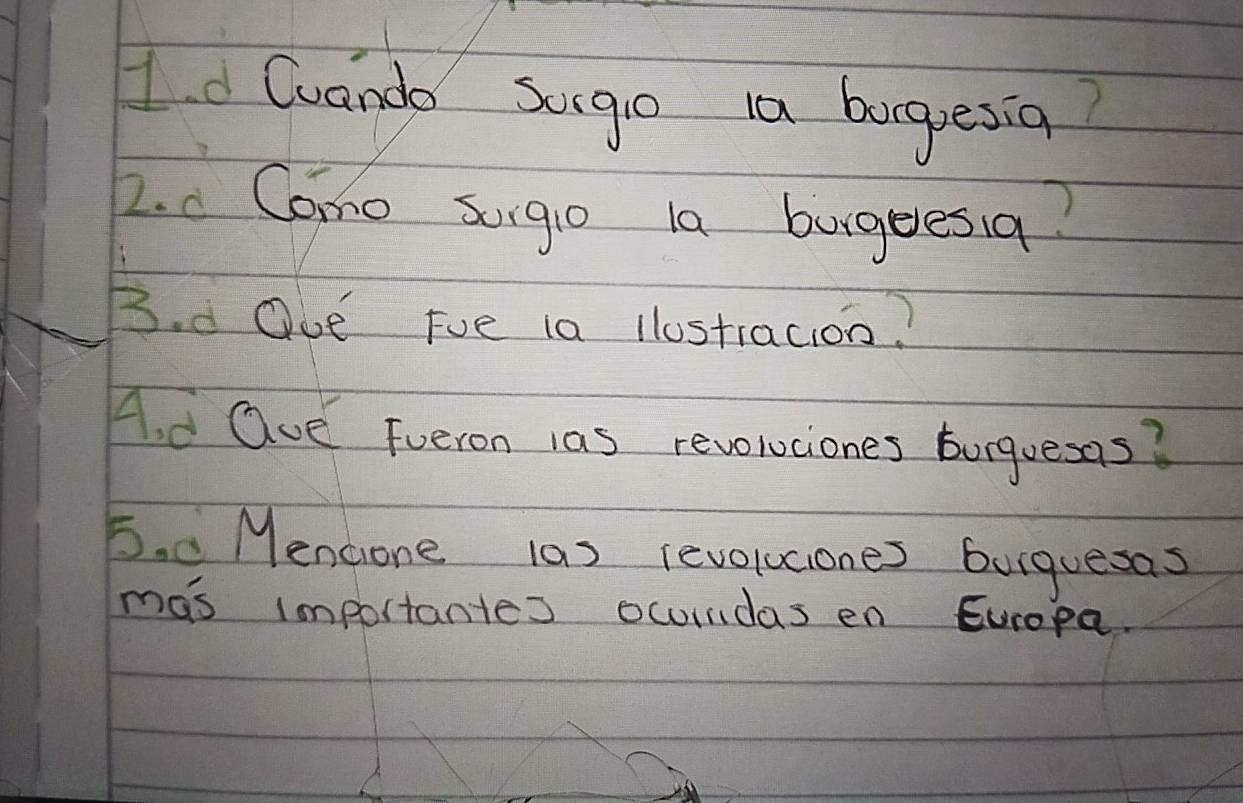 1.¿ Cuándo surgio la burguesia?
2.¿ Cómo surgio la burguesia?
3.¿ Qué Fue la ilustración?
4.¿ Qué Fueron las revoluciones burguesas?
5.¿ Mencione las revoluciones burguesas
más importantes ocurridas en Europa.